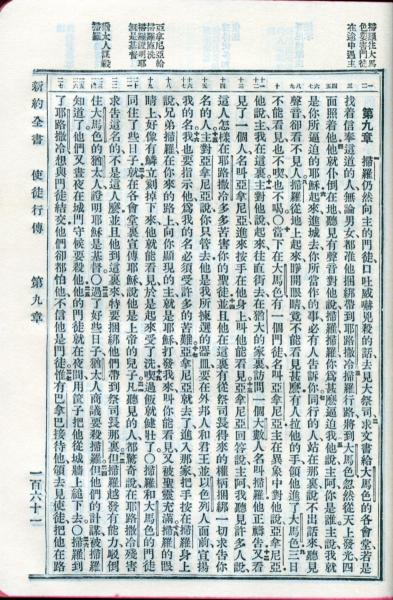 掃羅往大馬
色要害門徒
在途中遇主
亞拿尼亞給
掃羅施洗
掃羅證明耶
穌是基督
猶太人謀殺
掃羅
第九章 掃羅仍然向主的門徒口吐威嚇兇殺的話去見大祭司求文書給大馬色的各會堂若是
找着信奉這道的人無論男女都准他捆綁帶到耶路撒冷掃羅行路將到大馬色忽然從天上發光四
面照着他他就仆倒在地聽見有聲音對他說掃羅掃羅你爲甚麼逼迫我他說主阿你是誰主說我就
是你所逼迫的耶穌起來進城去你所當作的事必有人告訴你同行的人站在那裏說不出話來聽見
聲音卻看不見人掃羅從地上起來睜開眼睛竟不能看見甚麼有人拉他的手領他進了大馬色三日
不能看見也不喫也不喝○當下在大馬色有一個門徒名叫亞拿尼亞主在異象中對他說亞拿尼亞
他說主我在這裏主對他說起來往直街去在猶大的家裏訪問一個大數人名叫掃羅他正禱告又看
見了一個人名叫亞拿尼亞進來按手在他身上叫他能看見亞拿尼亞回答說主阿我聽見許多人說
這人怎樣在耶路撒冷多多苦害你的聖徒並且他在這裏有從祭司長得來的權柄捆綁一切求告你
名的人主對亞拿尼亞說你只管去他是我所揀選的器皿要在外邦人和君王並以色列人面前宣揚
我的名我也要指示他爲我的名必須受許多的苦難亞拿尼亞就去了進入那家把手按在掃羅身上
說兄弟掃羅在你來的路上向你顯現的主就是耶穌打發我來叫你能看見又被聖靈充滿掃羅的眼
睛上好像有鱗立刻掉下來他就能看見於是起來受了洗喫過飯就健壯了○掃羅和大馬色的門徒
同住了些日子就在各會堂裏宣傳耶穌說他是上帝的兒子凡聽見的人都驚奇說在耶路撒冷殘害
求告這名的不是這人麼並且他到這裏來特要捆綁他們帶到祭司長那裏但掃羅越發有能力駁倒
住大馬色的猶太人證明耶穌是基督○過了好些日子猶太人商議要殺掃羅但他們的計謀被掃羅
知道了他們又晝夜在城門守候要殺他他的門徒就在夜間用筐子把他從牆上縋下去○掃羅到
了耶路撒冷想與門徒結交他們卻都怕他不信他是門徒惟有巴拿巴接待他領去見使徒把他在路
新約全書 使徒行傳 第九章 一百六十一